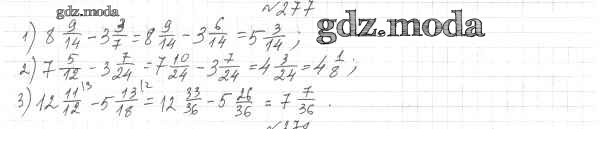 №277
gdz.moda
gdz.moda
1) 8 9/14 - 3 3/7 = 8 9/14 - 3 6/14 = 5 3/14 ;
2) 7 5/12 - 3 7/24 = 7 10/24 - 3 7/24 = 4 3/24 = 4 1/8 ;
3) 12 11/12 \3 - 5 13/18 \2 = 12 33/36 - 5 26/36 = 7 7/36 .